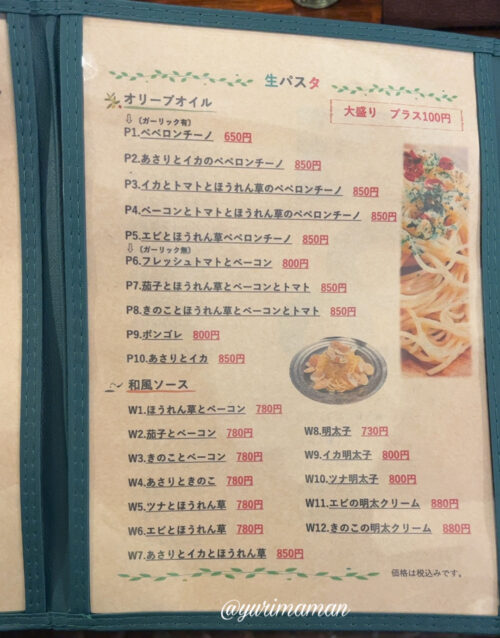 生パスタ
オリーブオイル
大盛り プラス100円
⇩ (ガーリック有)
P1.ペペロンチーノ 650円
P2.あさりとイカのペペロンチーノ 850円
P3.イカとトマトとほうれん草のペペロンチーノ 850円
P4.ベーコンとトマトとほうれん草のペペロンチーノ 850円
P5.エビとほうれん草ペペロンチーノ 850円
⇩ (ガーリック無)
P6.フレッシュトマトとベーコン 800円
P7.茄子とほうれん草とベーコンとトマト 850円
P8.きのことほうれん草とベーコンとトマト 850円
P9.ボンゴレ 800円
P10.あさりとイカ 850円
和風ソース
W1.ほうれん草とベーコン 780円
W2.茄子とベーコン 780円
W3.きのことベーコン 780円
W4.あさりときのこ 780円
W5.ツナとほうれん草 780円
W6.エビとほうれん草 780円
W7.あさりとイカとほうれん草 850円
W8.明太子 730円
W9.イカ明太子 800円
W10.ツナ明太子 800円
W11.エビの明太クリーム 880円
W12.きのこの明太クリーム 880円
価格は税込みです。
@yurimaman